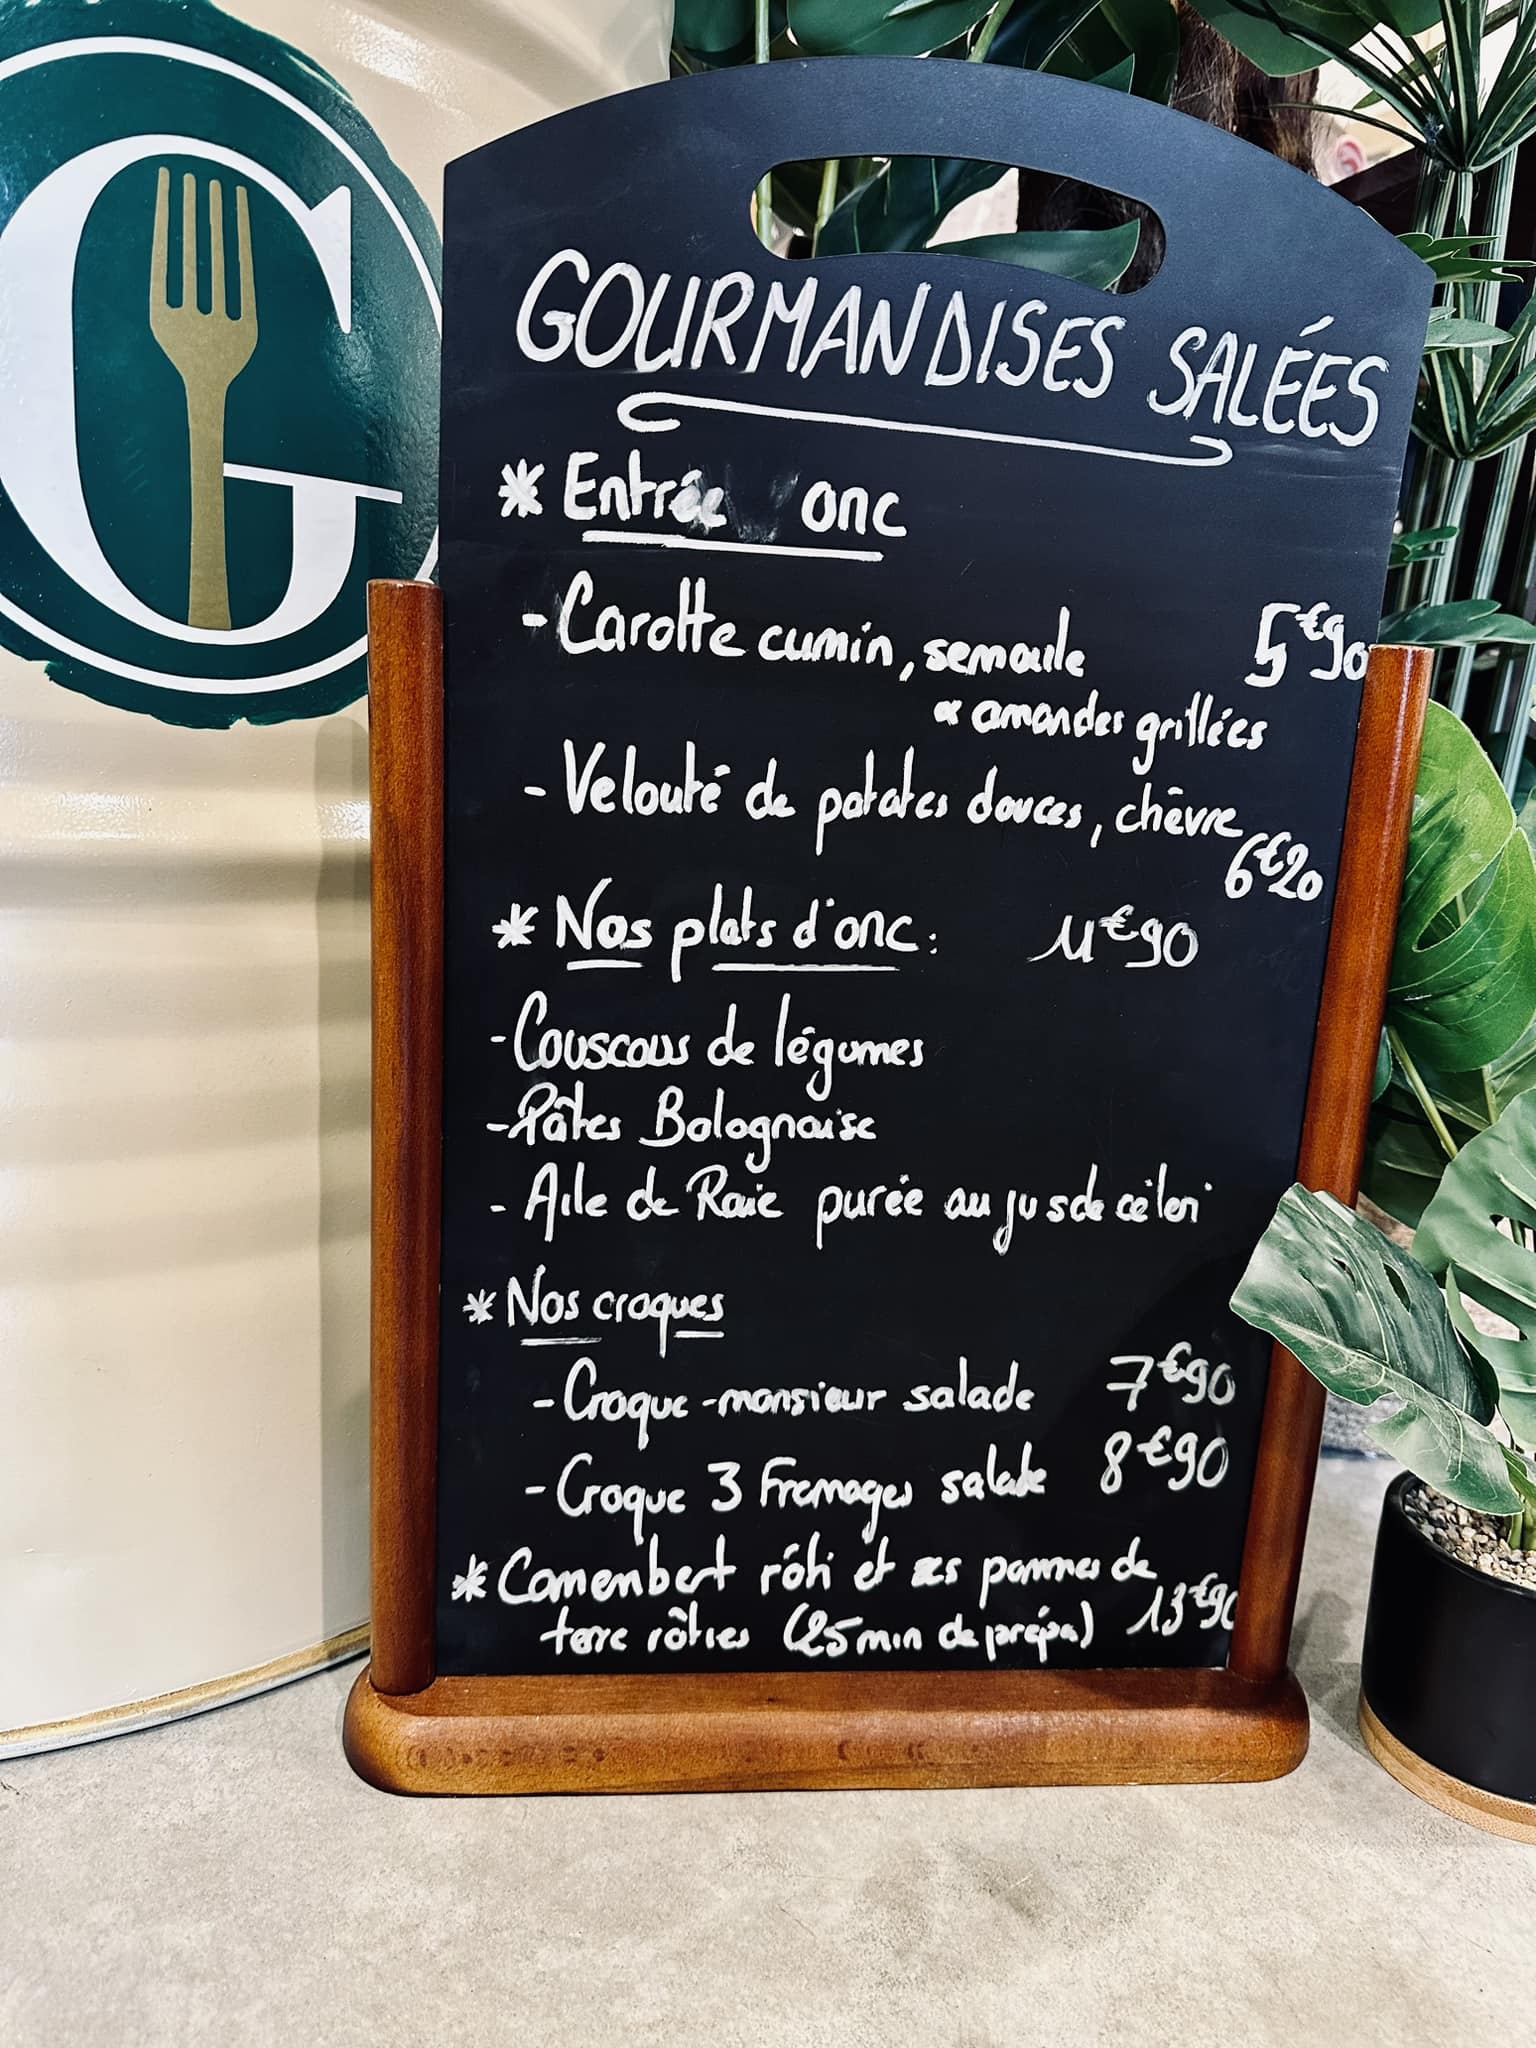 G
GOURMANDISES SALÉES
* Entrée onc
- Carotte cumin, semoule 5€90
& amandes grillées
- Velouté de patates douces, chèvre
6€20
* Nos plats d'onc : 11€90
- Couscous de légumes
- Pâtes Bolognaise
- Aile de Raie purée au jus de céleri
* Nos croques
- Croque-monsieur salade 7€90
- Croque 3 Fromages salade 8€90
* Camembert rôti et ses pommes de
terre rôties (25 min de prépa) 13€90